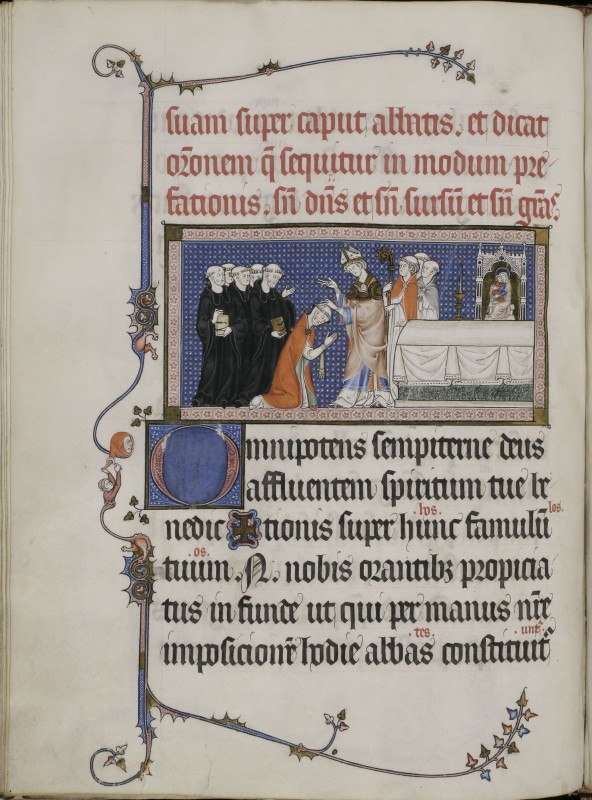 suam super caput abbatis. et dicat
or̄onem q̄ sequitur in modum pre
fationis. sn̄ dn̄s et sn̄ sursū et sn̄ grās.
Omnipotens sempiterne deus
affluentem spiritum tue be
hos. los.
nedic ✠ tionis super hunc famulū
os.
tuum .N. nobis orantibꝫ propicia
tus in funde ut qui per manus nr̄e
tes. unt᷑.
imposicion̄e hodie abbas constituit᷑